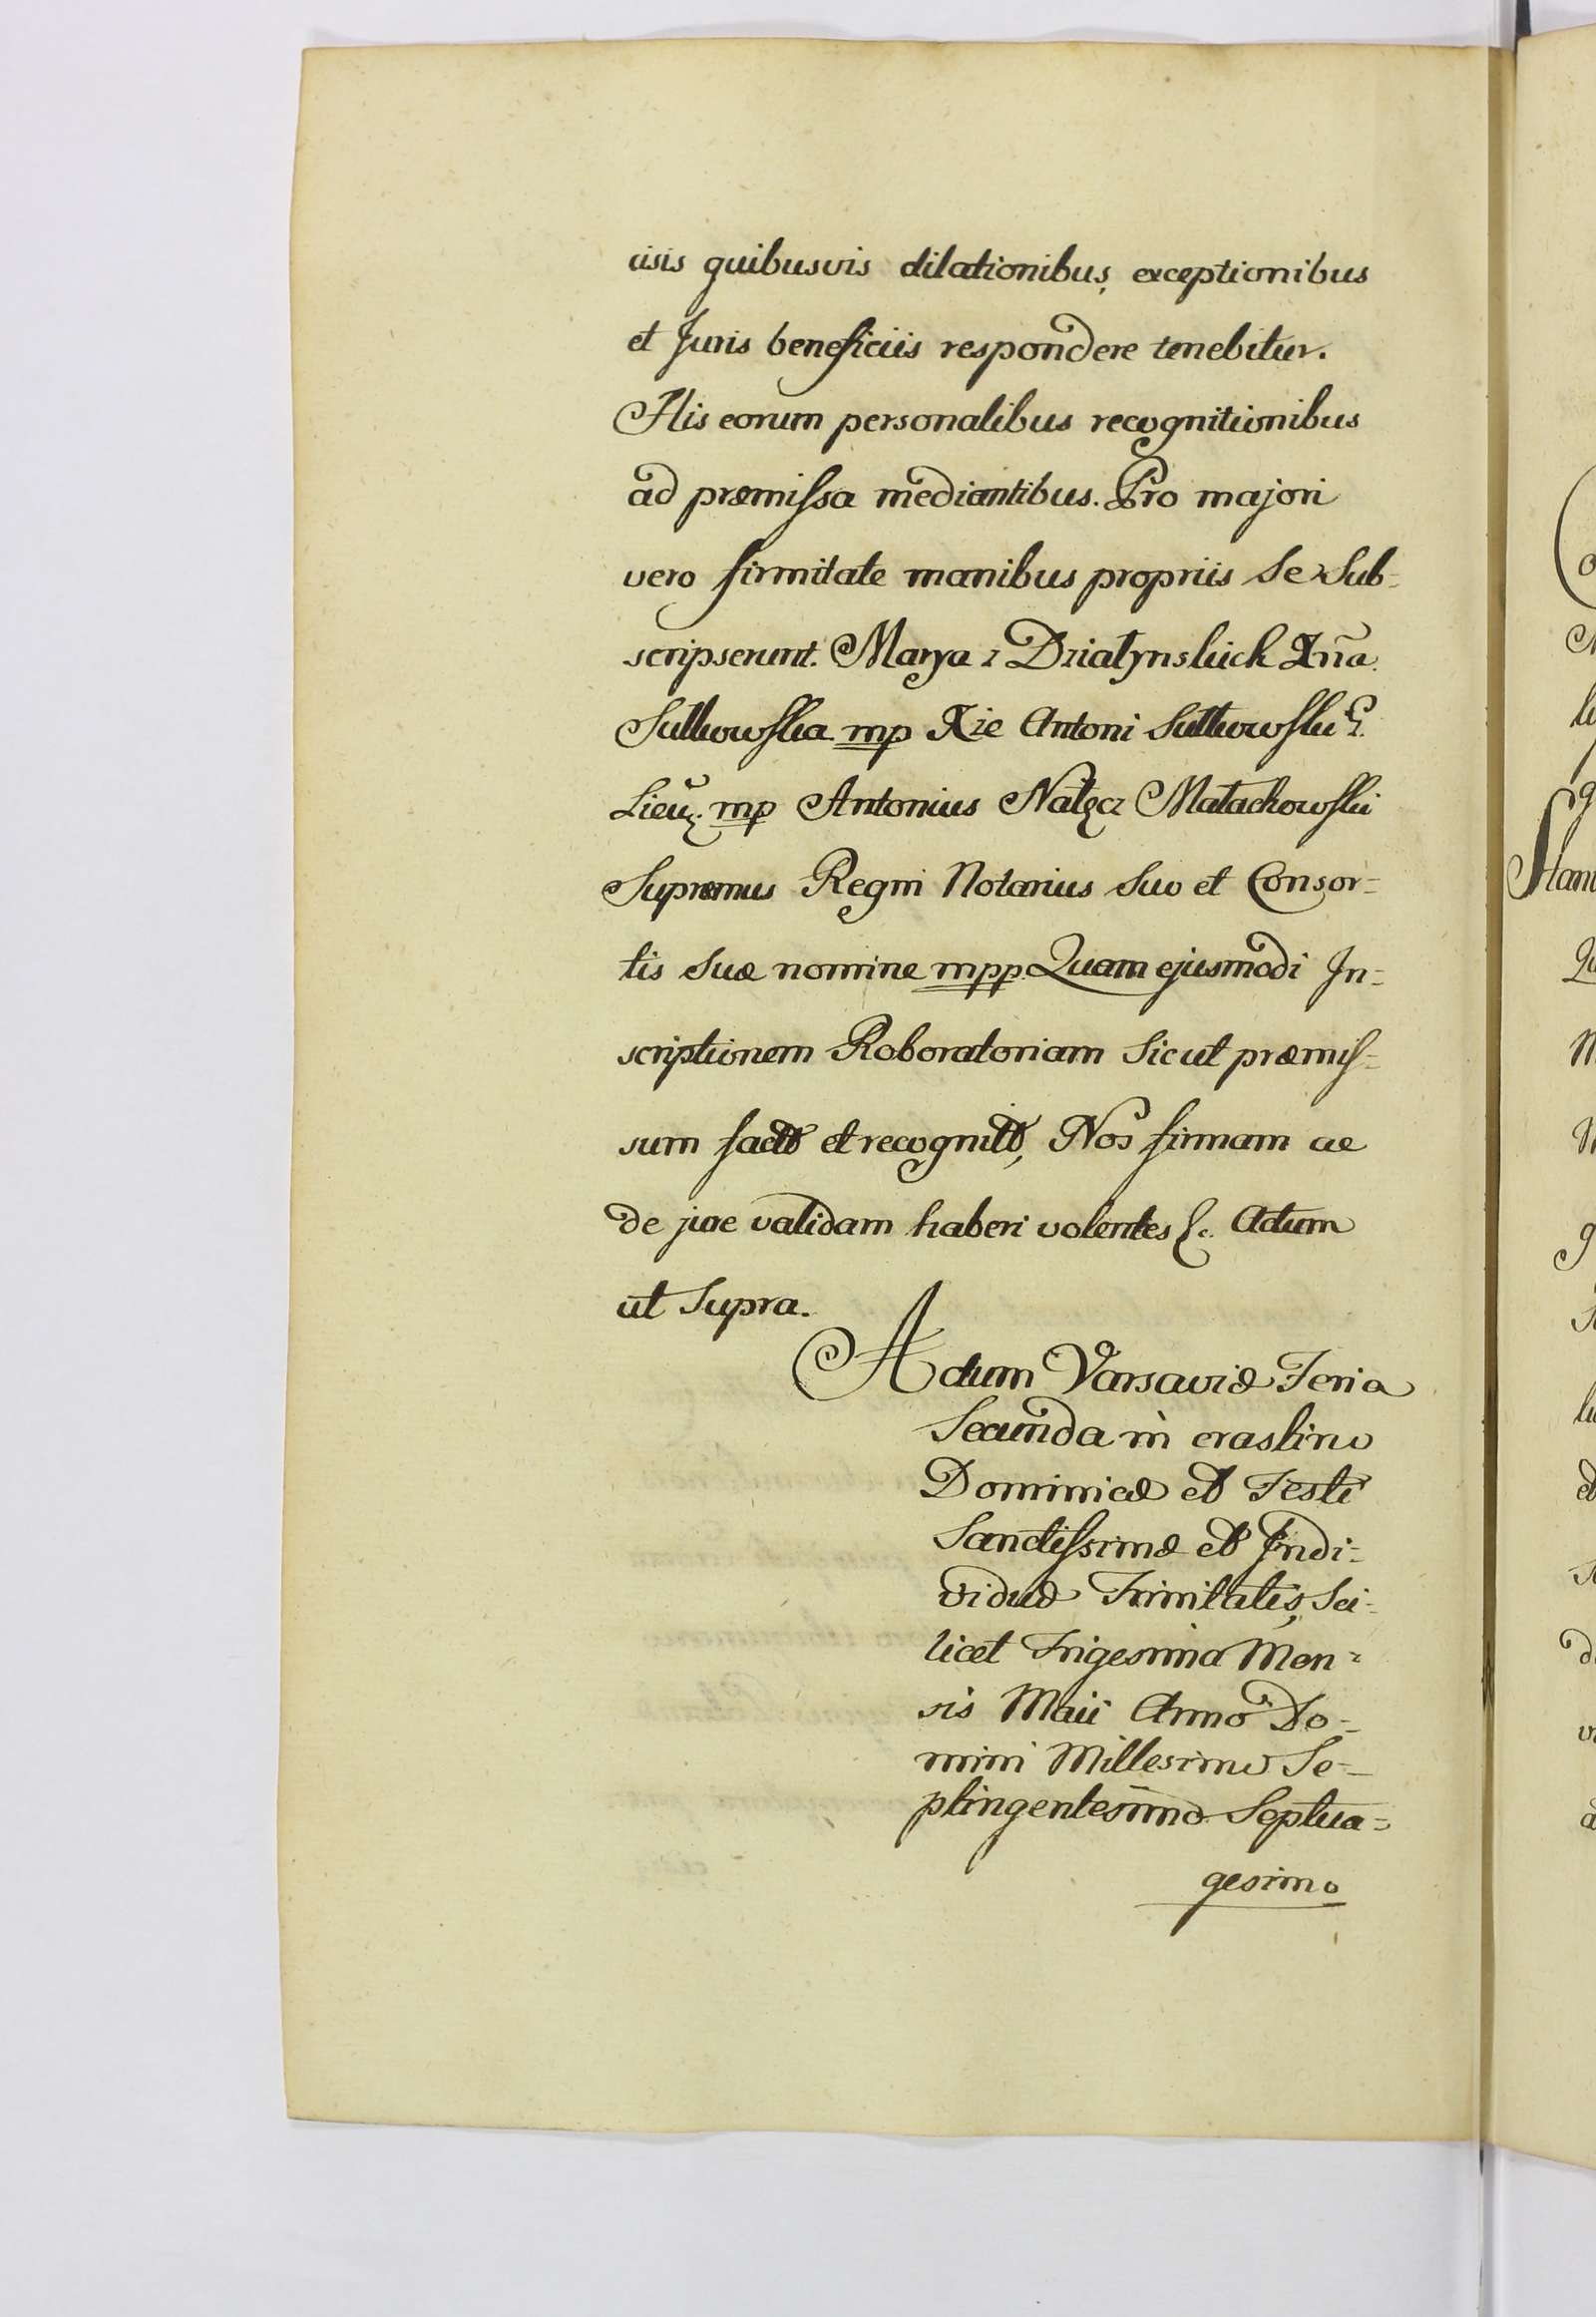 cisis quibusvis dilationibus, exceptionibus
et Juris beneficiis respondere tenebitur.
His eorum personalibus recognitionibus
ad præmissa mediantibus. Pro majori
vero firmitate manibus propriis se sub-
scripserunt. Marya z Działynskich Xna
Sułkowska mp Xże Antoni Sułkowski G.
Lieut. mp Antonius Nałęcz Małachowski
Supremus Regni Notarius suo et Consor=
tis suæ nomine mpp. Quam ejusmodi In=
scriptionem Roboratoriam sicut præmis=
sum facto et recognito, Nos firmam ac
de jure validam haberi volentes &c. Actum
ut supra.
Actum Varsaviæ Feria
Secunda in crastino
Dominicæ et Festi
Sanctissimæ et Indi=
viduæ Trinitatis, sci=
licet Trigesima Men=
sis Maii Anno Do=
mini Millesimo Se=
ptingentesimo Septua=
gesimo